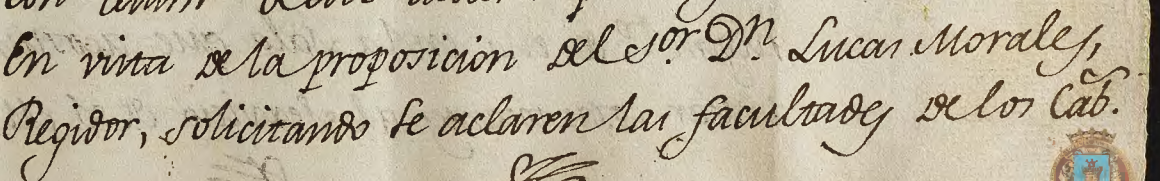 En vista de la proposicion del Sor. Dn. Lucas Morales,
Regidor, solicitando se aclaren las facultades de los Cab.